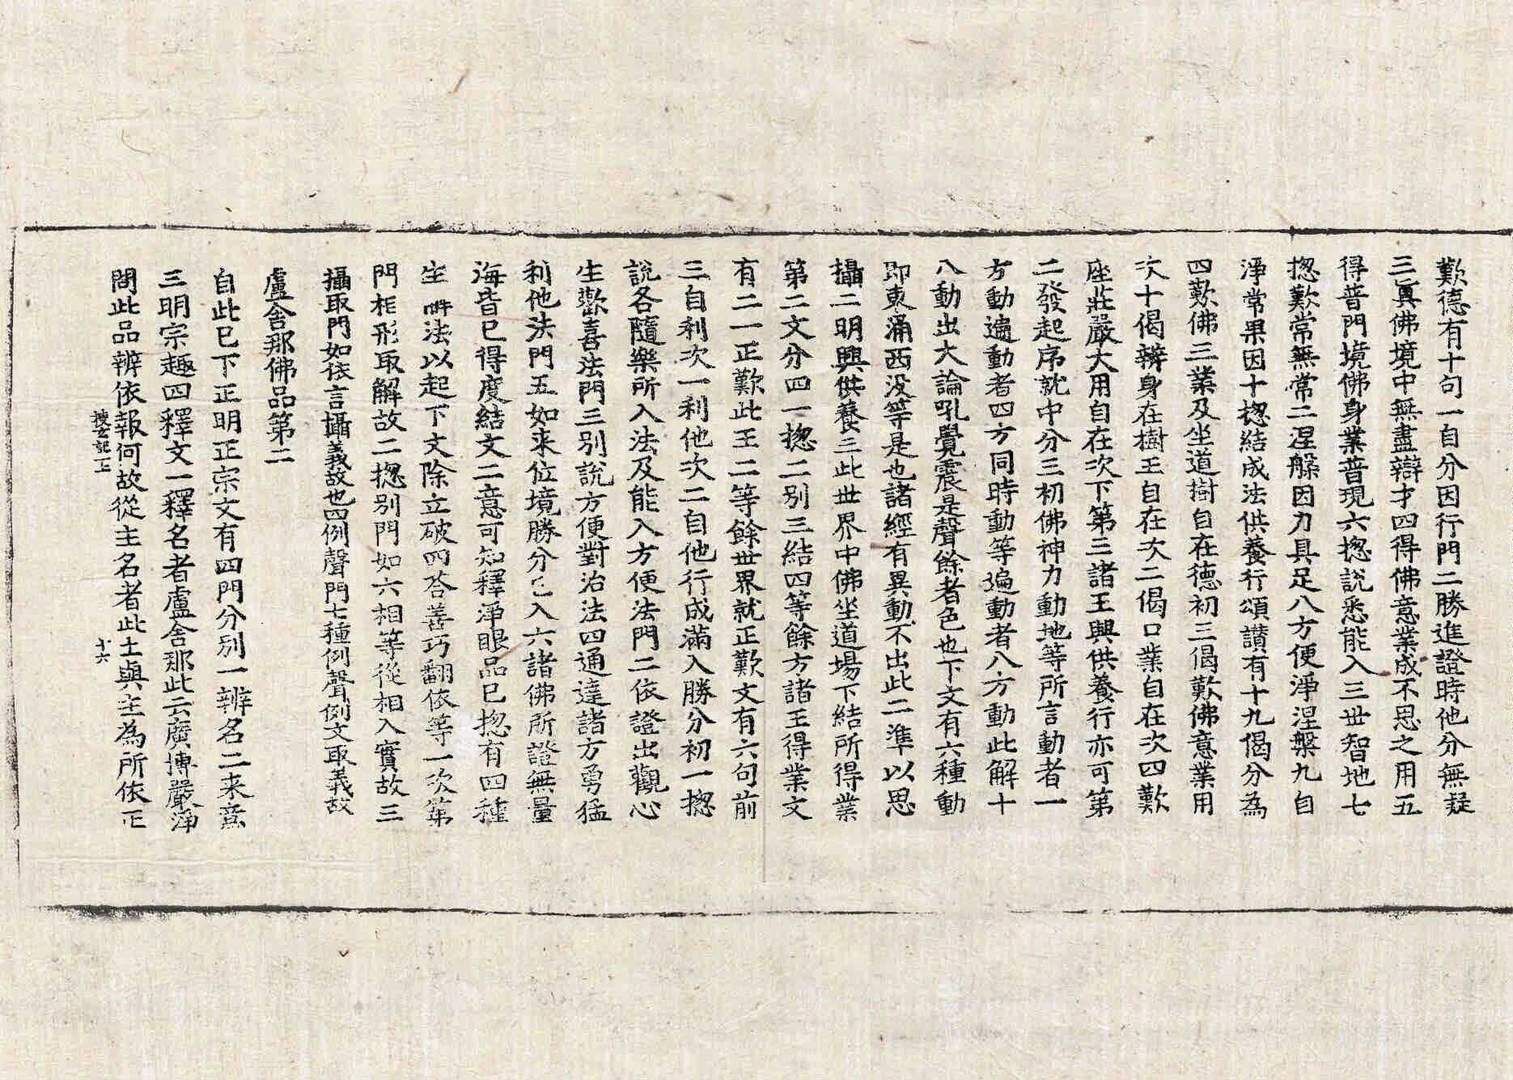 歎德有十句一自分因行門二勝進證時他分無疑
三是真佛境中無盡辯才四得佛意業成不思之用五
得普門境佛身業普現六揔說悉能入三世智地七
揔歎常無常二涅槃因力具足八方便淨涅槃九自
淨常果因十揔結成法供養行頌讃有十九偈分為
四歎佛三業及坐道樹自在德初三偈歎佛意業用
次十偈辨身在樹王自在次二偈口業自在次四歎
座莊嚴大用自在次下第三諸王興供養行亦可第
二發起序就中分三初佛神力動地等所言動者一
方動遍動者四方同時動等遍動者八方動此解十
八動出大論吼覺震是聲餘者色也下文有六種動
即東涌西沒等是也諸經有異動不出此二準以思
攝二明興供養三此世界中佛坐道場下結所得業
第二文分四一揔二別三結四等餘方諸王得業文
有二一正歎此王二等餘世界就正歎文有六句前
三自利次一利他次二自他行成滿入勝分初一揔
說各隨樂所入法及能入方便法門二依證出觀心
生歡喜法門三別說方便對治法四通達諸方勇猛
利他法門五如来位境勝分已入六諸佛所證無量
海皆已得度結文二意可知釋淨眼品已揔有四種
生㪽法以起下文除立破四荅善巧翻依等一次第
門相形取解故二揔別門如六相等從相入實故三
攝取門如依言攝義故也四例聲門七種例聲例文取義故
盧舍那佛品第二
自此已下正明正宗文有四門分別一辨名二来意
三明宗趣四釋文一釋名者盧舍那此云廣博嚴淨
搜玄記一上　十六
問此品辨依報何故從主名者此土與主為所依正